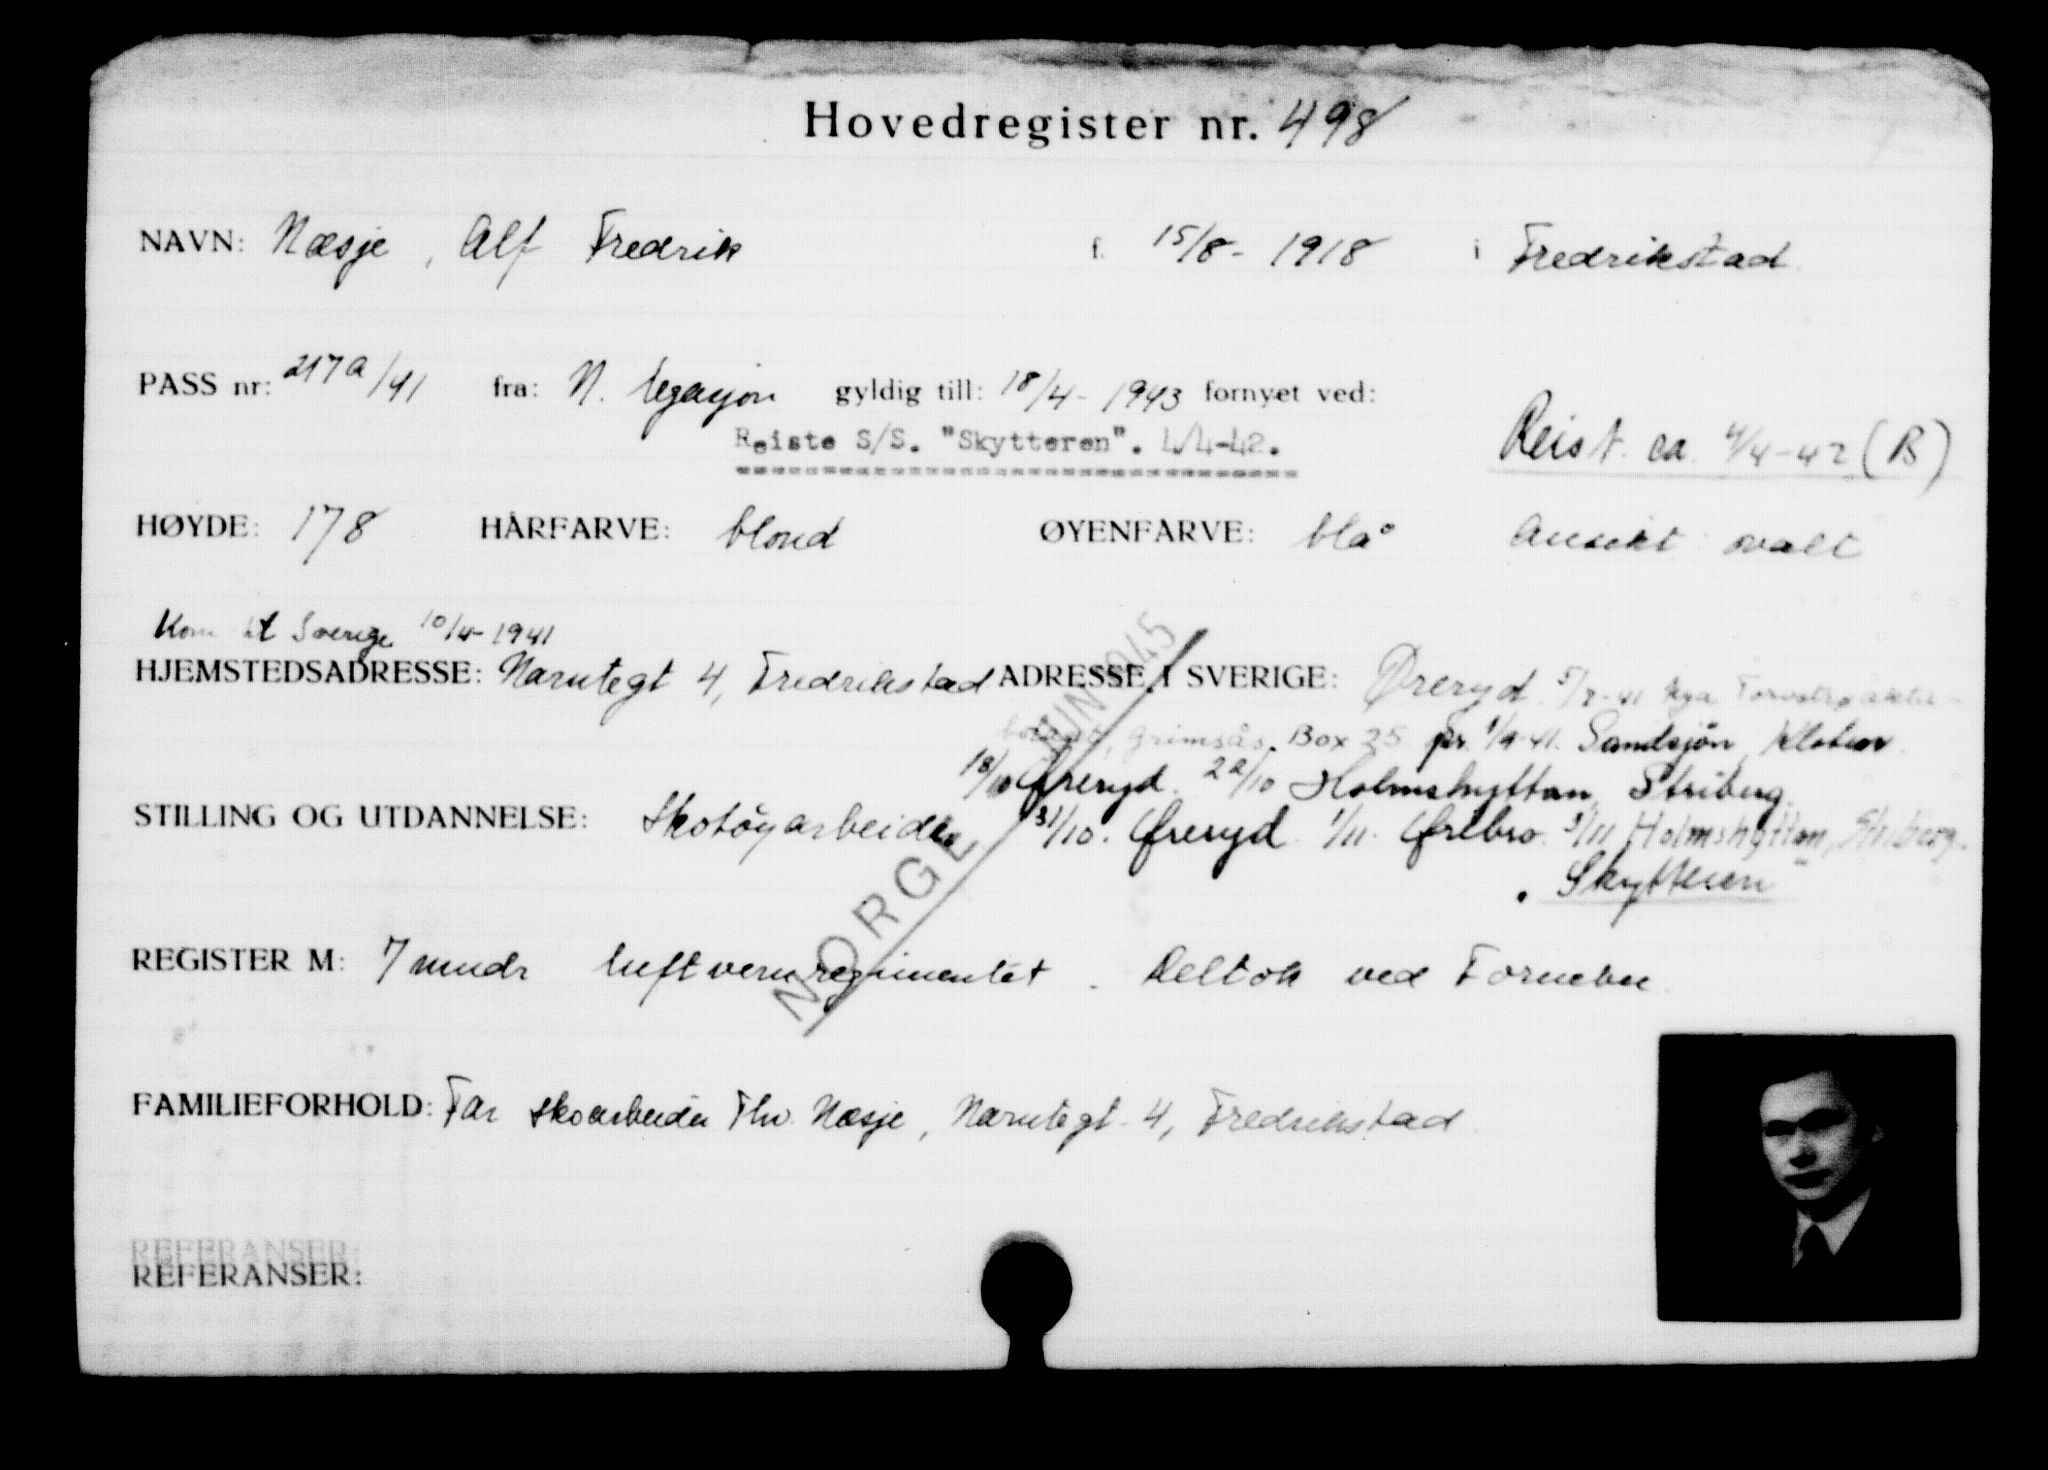 Hovedregister nr. 498
NAVN: Næsje, Alf Fredrik f. 15/8- 1918 i Fredrikstad
PASS nr: 217a/41 fra: N. legasjon gyldig till: 18/4- 1943 fornyet ved:
Reiste S/S. "Skytteren". 4/4-42.
Reist ca. 4/4-42 (B)
HØYDE: 178 HÅRFARVE: blond ØYENFARVE: blå Ansikt: ovalt
Kom til Sverige 10/4-1941
HJEMSTEDSADRESSE: Narntegt 4, Fredrikstad ADRESSE I SVERIGE: Øreryd. 5/7-41 Nya
Grimsås. Box 35 pr. 1/9-41. Sandsjön
18/10 Øreryd. 22/10 Holmshyttan, Striberg.
STILLING OG UTDANNELSE: Skotöyarbeider 31/10. Øreryd. 1/11. Ørebro. 3/11 Holmshyttan, Striberg.
"Skytteren"
NORGE JUNI 1945
REGISTER M: 7 mndr luftvernregimentet. Deltok ved Fornebu
FAMILIEFORHOLD: Far skoarbeider Thv. Næsje, Narntegt. 4, Fredrikstad
REFERANSER:
REFERANSER: